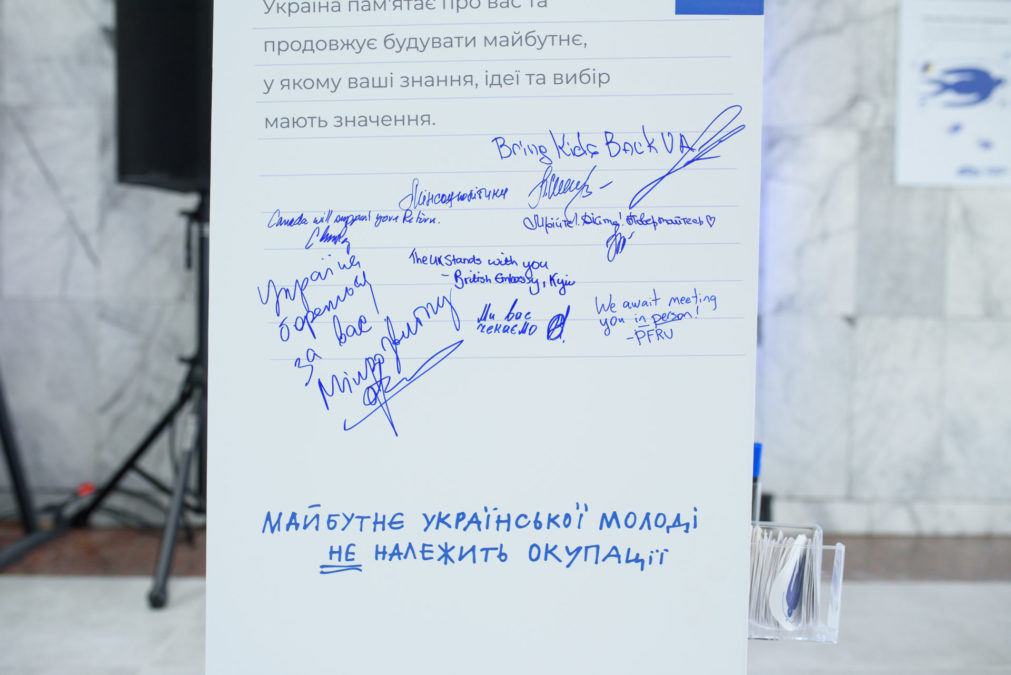 Україна пам'ятає про вас та
продовжує будувати майбутнє,
у якому ваші знання, ідеї та вибір
мають значення.
Bring Kids Back UA
Мінсоцполітики
Canada will support your return.
Мрійте! Дійте! Повертайтесь ♡
The UK stands with you
- British Embassy, Kyiv
Україна
бореться
за вас!
Ми вас
чекаємо
We await meeting
you in person!
-PFRU
МАЙБУТНЄ УКРАЇНСЬКОЇ МОЛОДІ
НЕ НАЛЕЖИТЬ ОКУПАЦІЇ